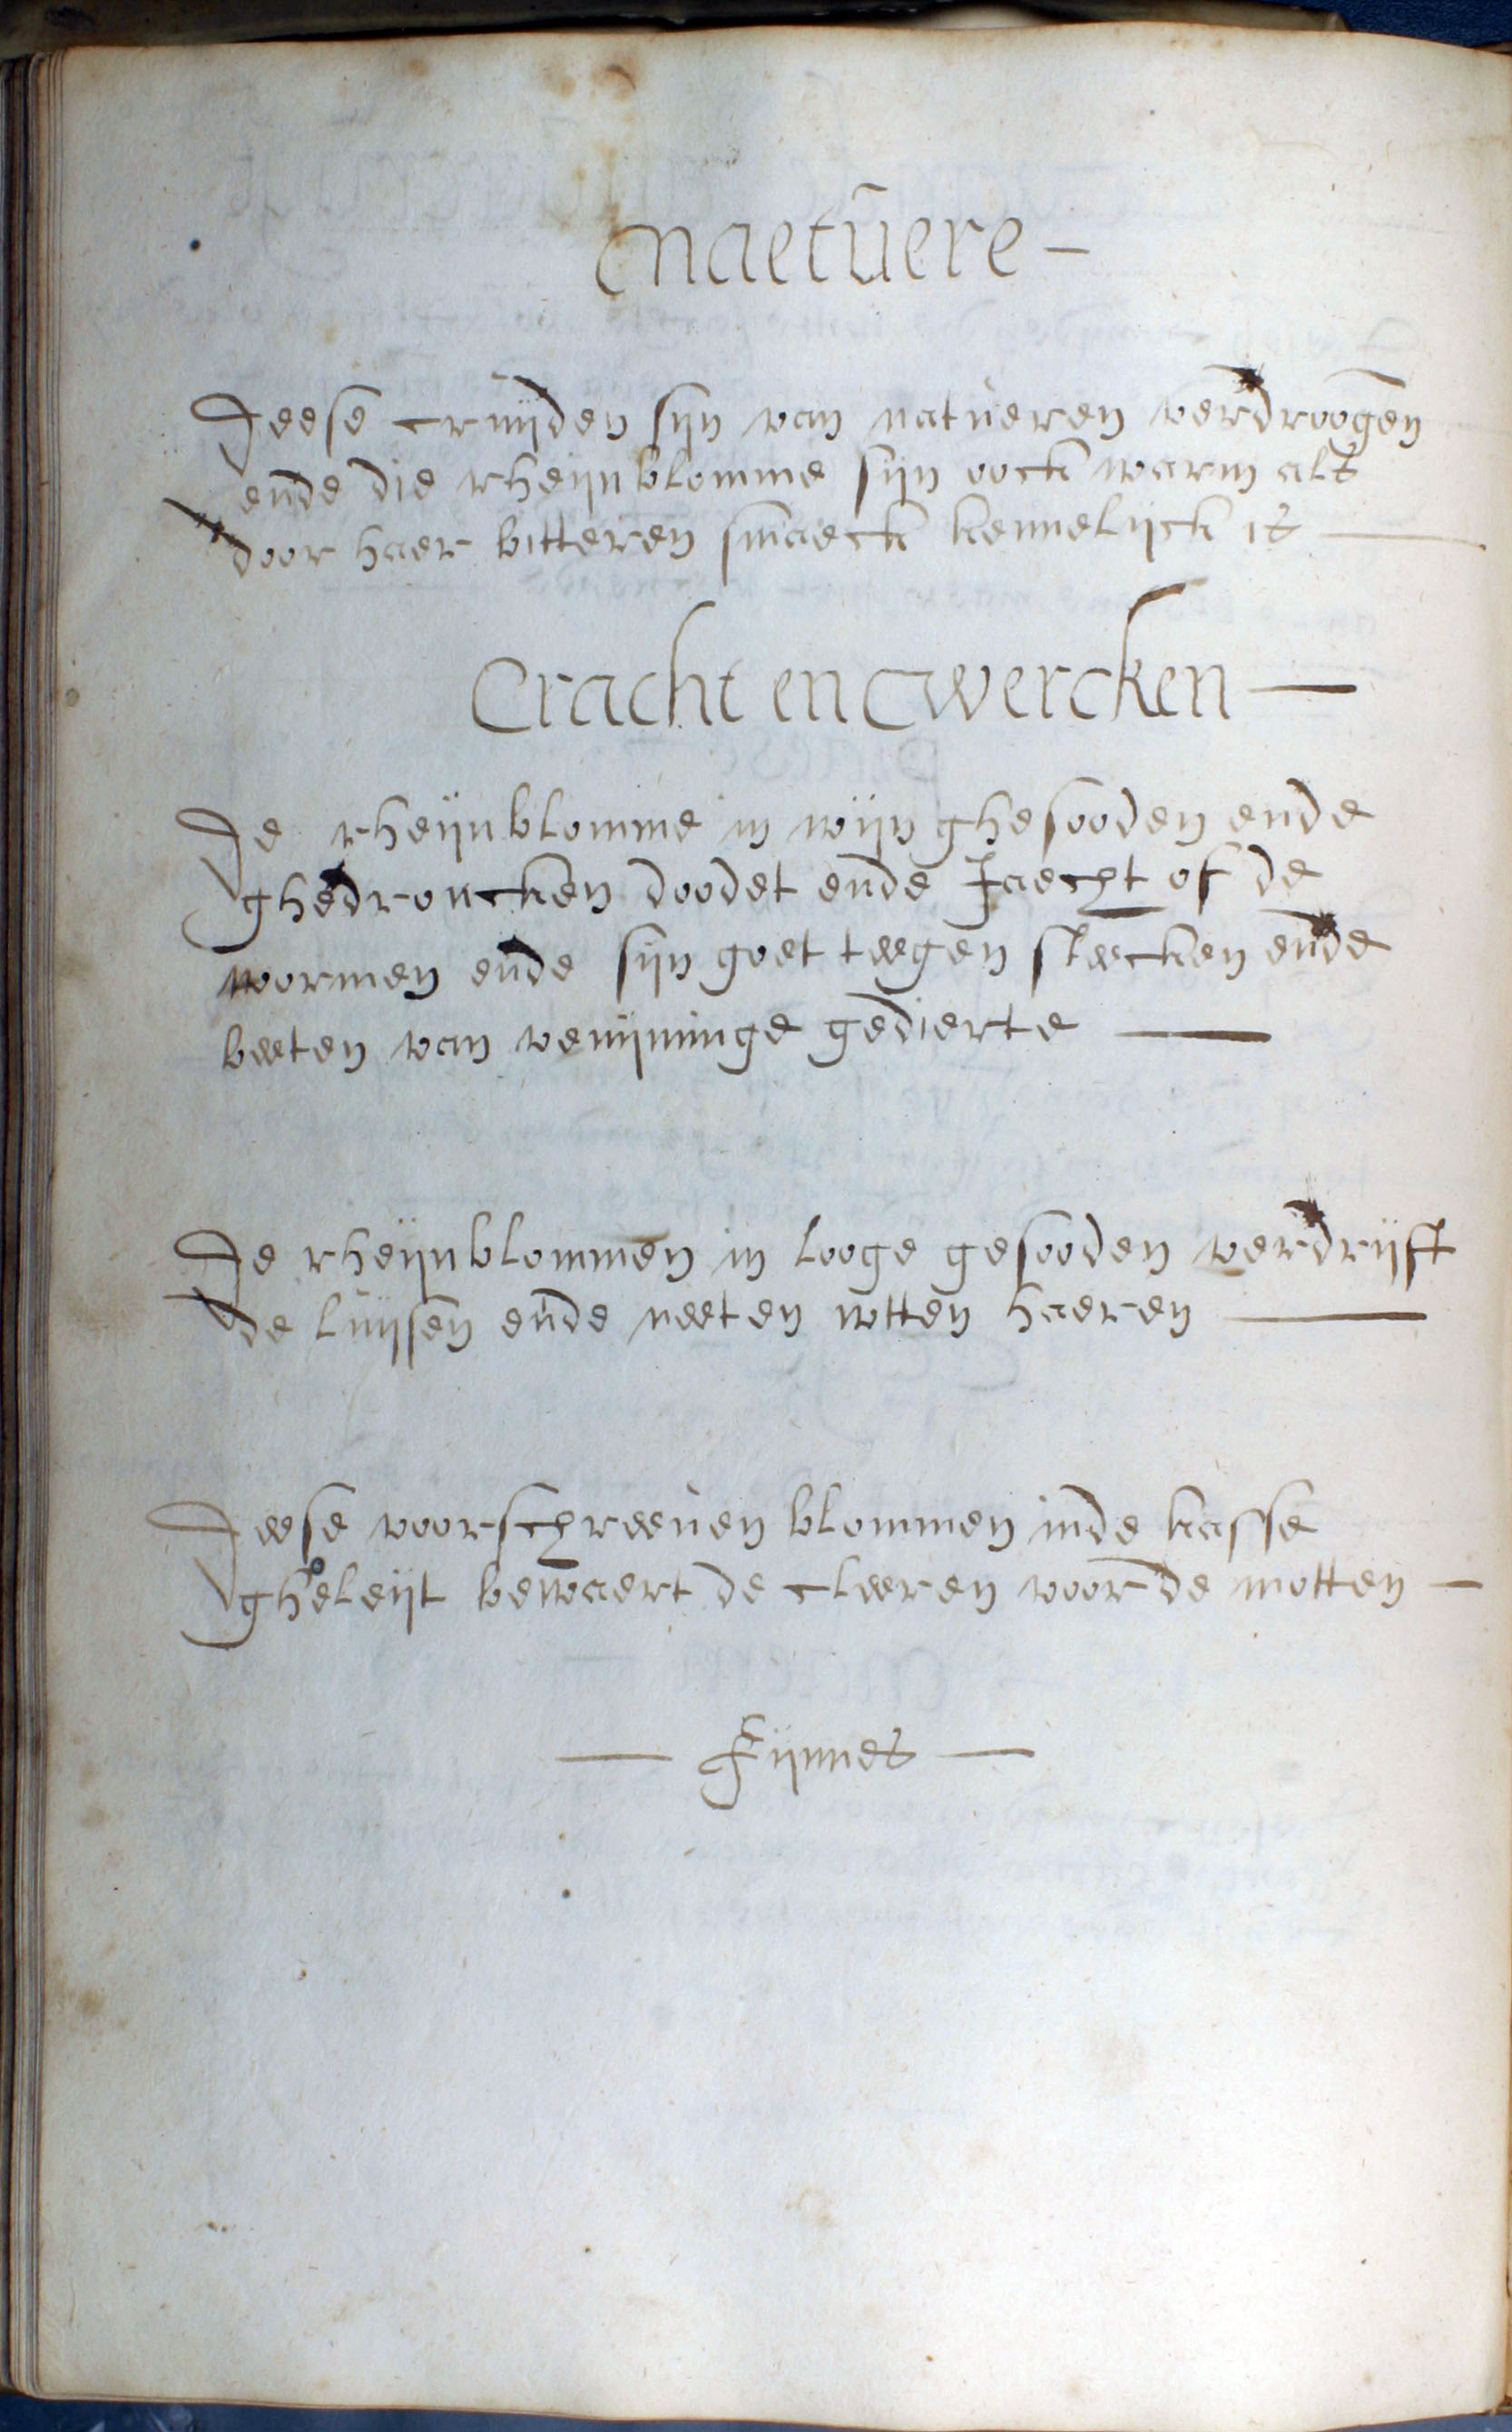 Naetuere -
Deese cruijden sijn van natueren verdroogen
ende die rheijnblomme sijn oock warm als
door haer bitteren smaeck kennelijck is
Cracht en wercken -
De rheijnblomme in wijn ghesooden ende
ghedroncken doodet ende Jaecht of de
wormen ende sijn goet teegen steecken ende
beeten van venijninge gedierte
De rheijnblommen in looge gesooden verdrijft
de luijsen ende neeten wtten haeren
Deese voorschreeven blommen inde kasse
gheleijt bewaert de cleeren voor de motten -
- Fijnnes -